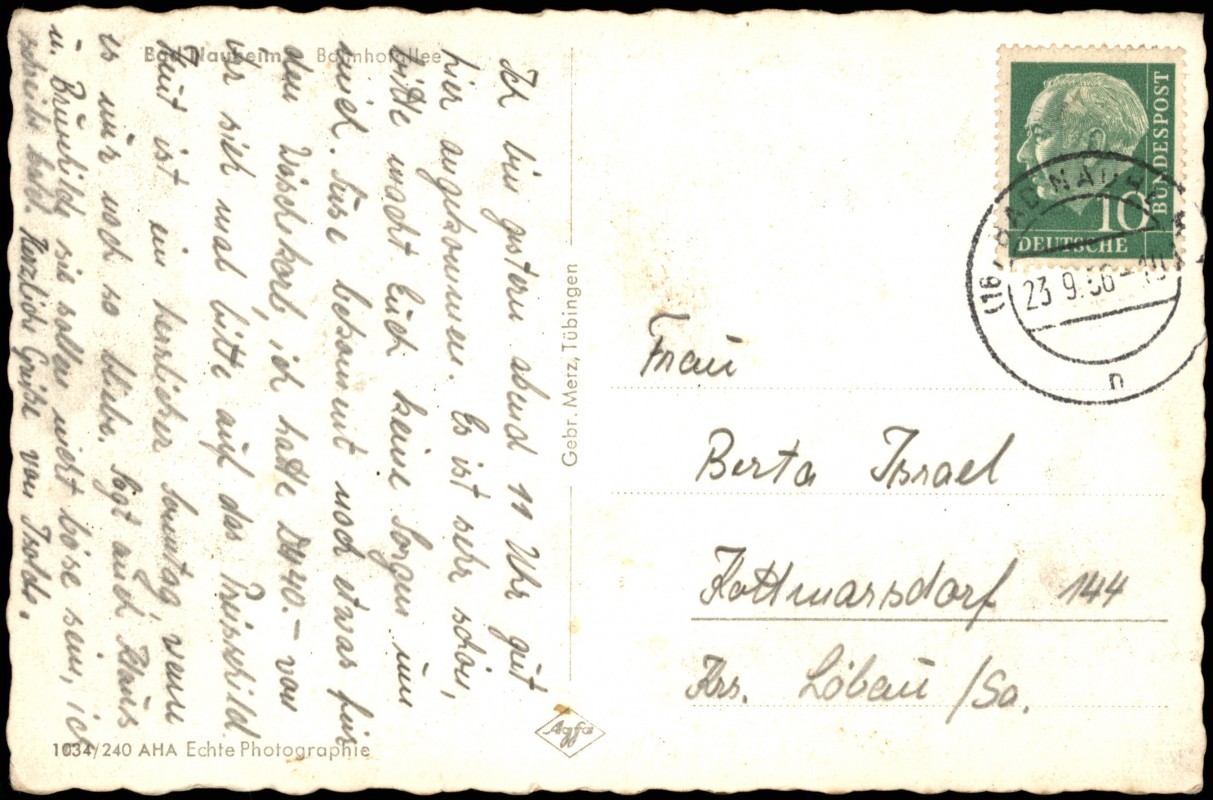 Bad Nauheim Bahnhofallee
Ich bin gestern abend 11 Uhr gut
hier angekommen. Es ist sehr schön,
bitte macht Euch keine Sorgen um
mich. Suse bekommt noch etwas für
den Wäschekorb, ich hatte DM 40.- von
ihr, sieh mal bitte auf das Preisschild.
Heut ist ein herrlicher Sonntag, wenn
es nur noch so bliebe. Sagt auch Klaus
u. Brunhilde sie sollen nicht böse sein, ich
schreib bald. Herzliche Grüße von
1034/240 AHA Echte Photographie
Gebr. Metz, Tübingen
Agfa
DEUTSCHE
BUNDESPOST
10
(16) BAD NAUHEIM
23.9.56-10
n
Frau
Berta Israel
Kottmarsdorf 144
Krs. Löbau /Sa.